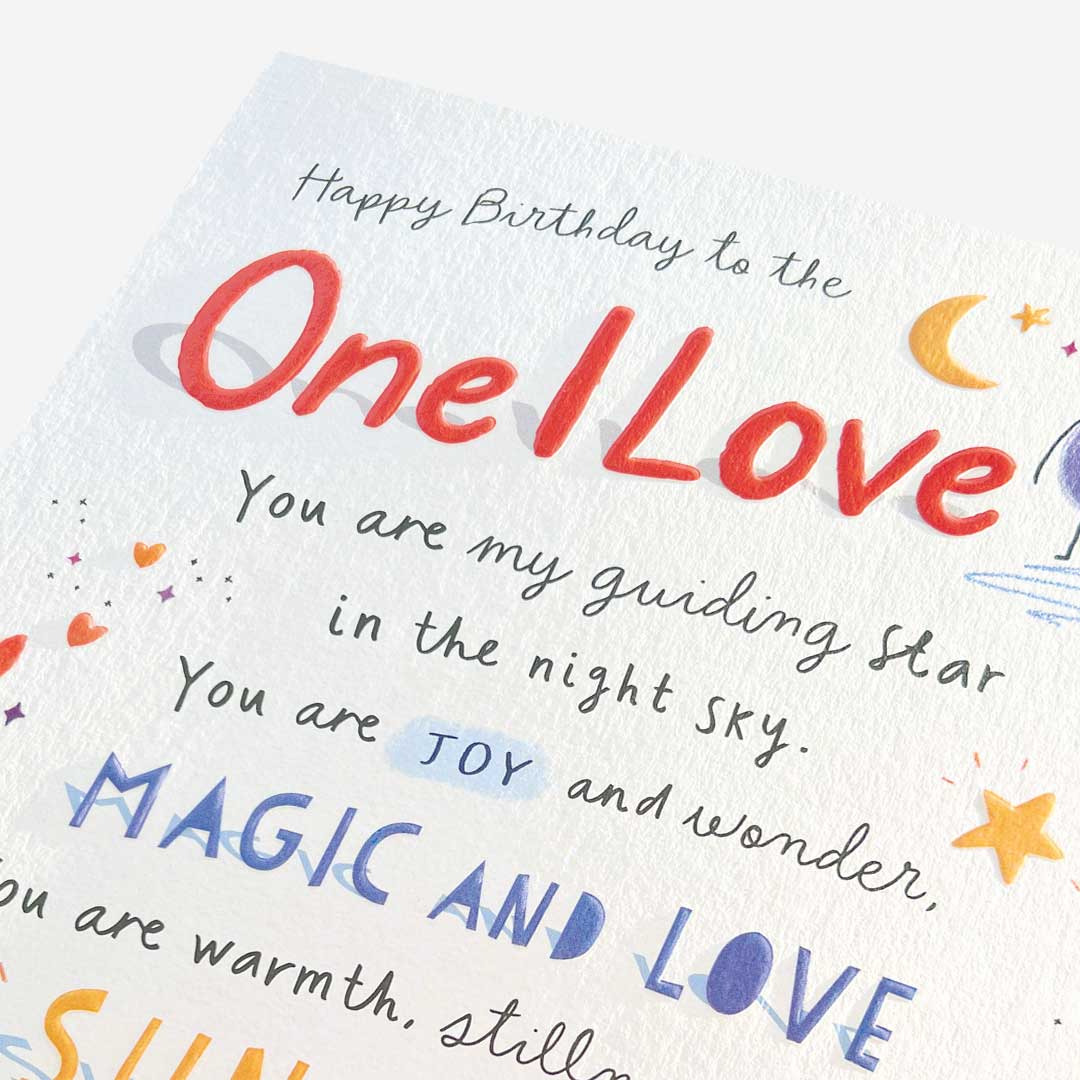 Happy Birthday to the
One I Love
You are my guiding star
in the night sky.
You are JOY and wonder,
MAGIC AND LOVE
You are warmth,
SUN